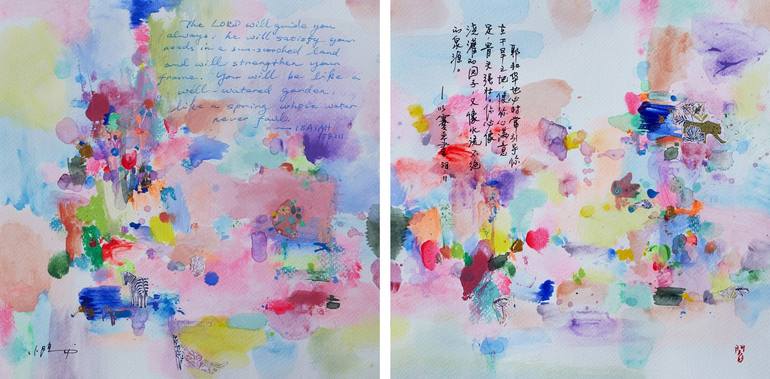 The LORD will guide you
always; he will satisfy your
needs in a sun-scorched land
and will strengthen your
frame. You will be like a
well-watered garden,
like a spring whose water
never fails.
— ISAIAH
58:11
耶和华也必时常引导你
在干旱之地使你心满意
足,骨头强壮。你必像
浇灌的园子,又像水流不绝
的泉源。